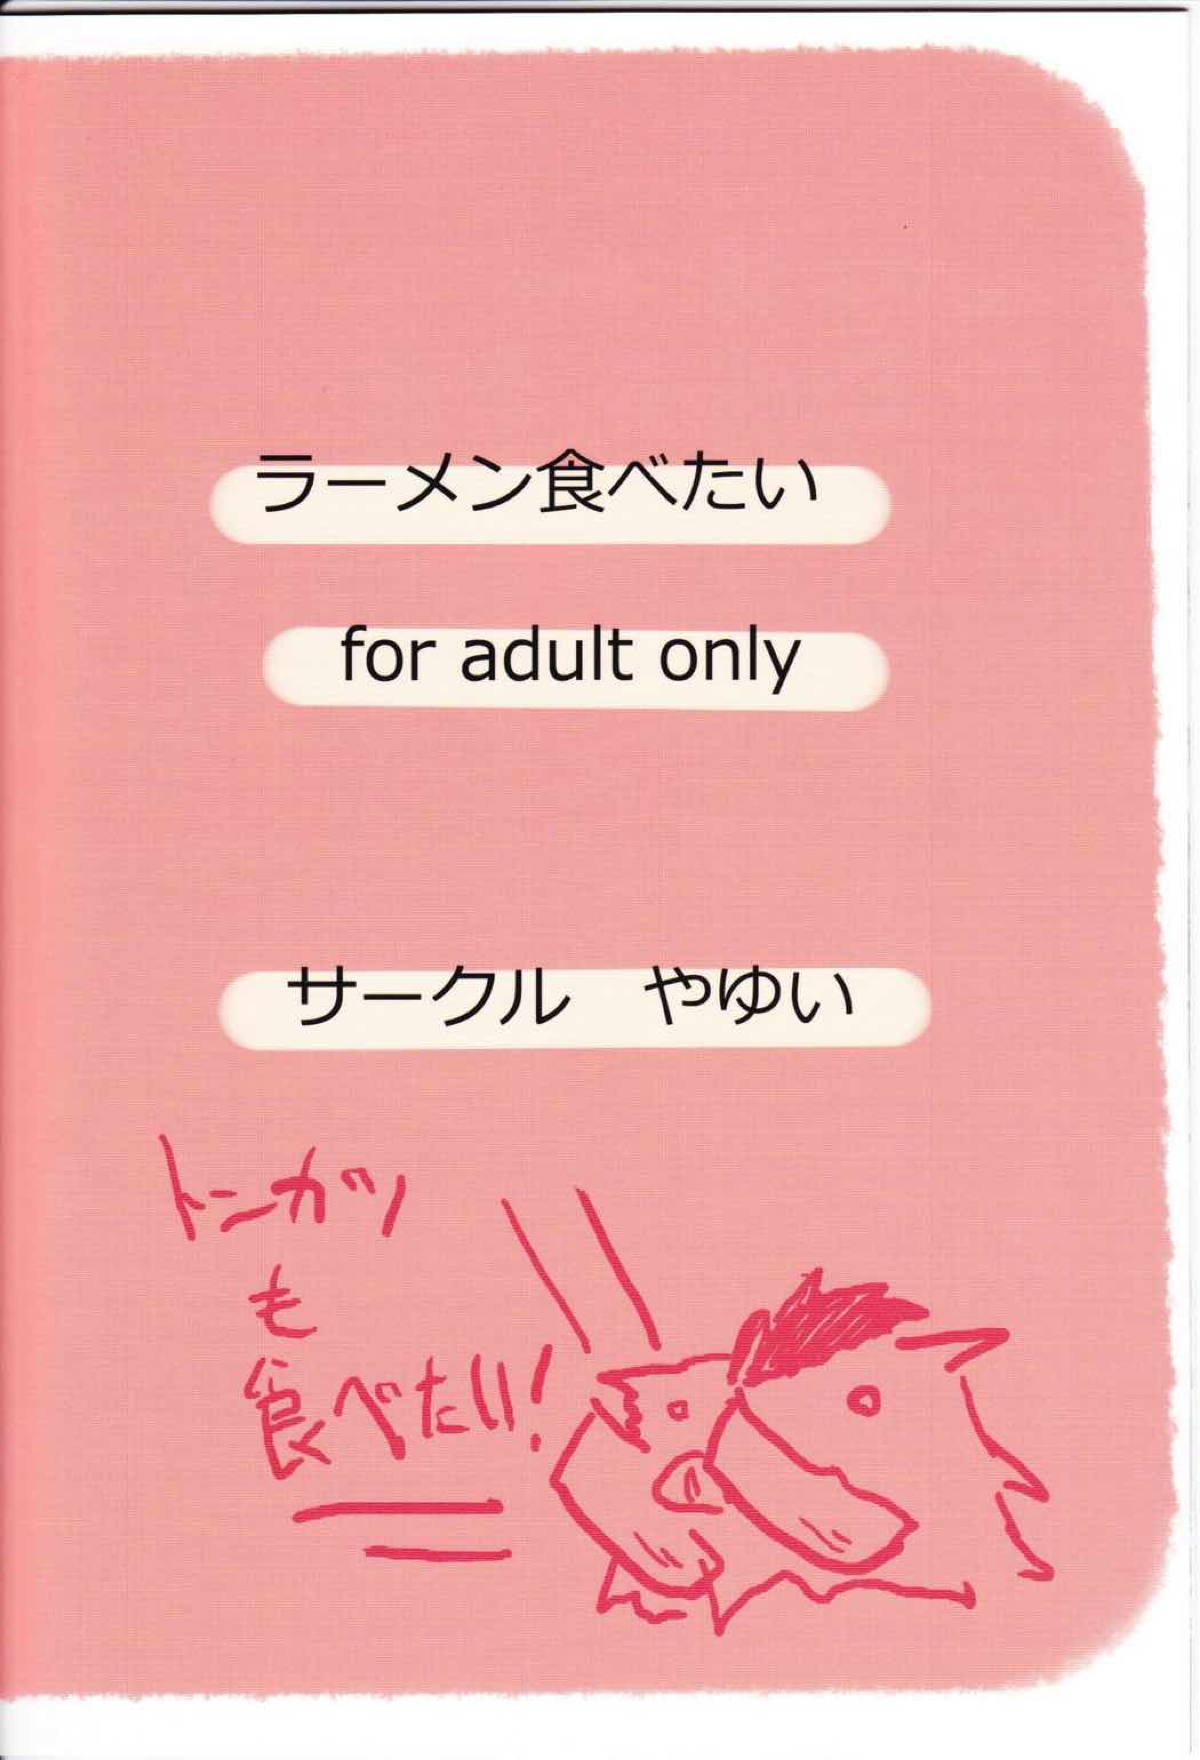 ラーメン食べたい
for adult only
サークル　やゆい
トンカツ
も
食べたい!